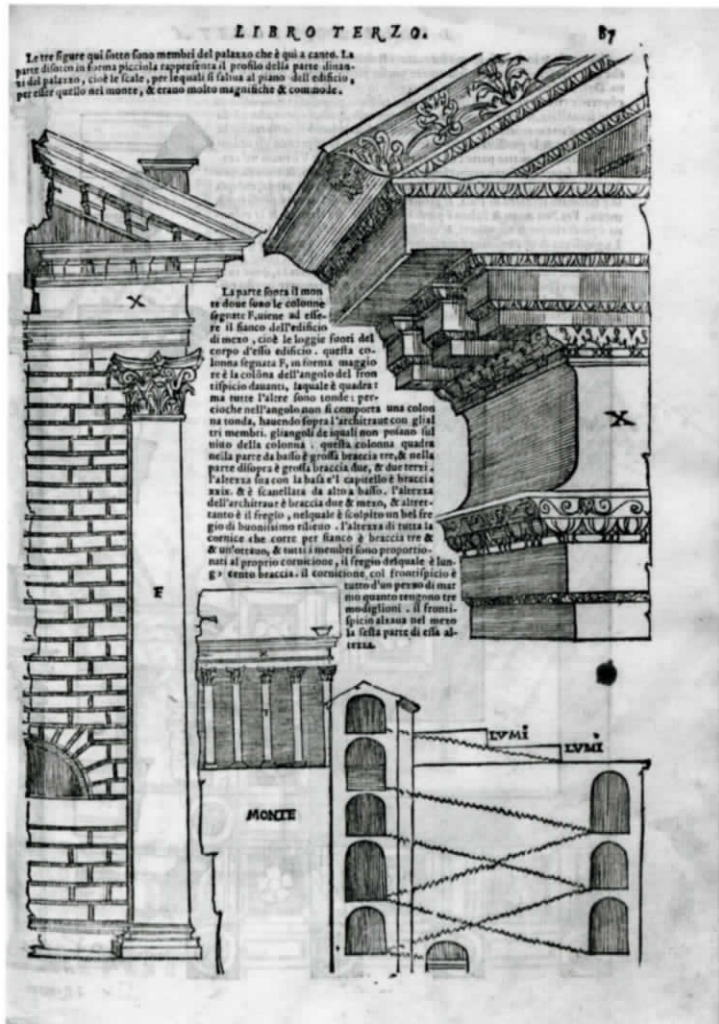 LIBRO TERZO.
87
Le tre figure qui sotto sono membri del palazzo che è qui a canto. La
parte disotto in forma picciola rappresenta il profilo della parte dinan-
zi del palazzo, cioè le scale, per lequali si saliua al piano dell edificio,
per esser quello nel monte, & erano molto magnifiche & commode.
La parte sopra il mon
te doue sono le colonne
segnate F, uiene ad esse-
re il fianco dell'edificio
di mezo, cioè le loggie fuori del
corpo d'esso edificio. questa co-
lonna segnata F, in forma maggio
re è la colōna dell'angolo del fron
tispicio dauanti, laquale è quadra:
ma tutte l'altre sono tonde: per-
cioche nell'angolo non si comporta una colon
na tonda, hauendo sopra l'architraue con glial
tri membri. gliangoli de iquali non posano sul
uiuo della colonna. questa colonna quadra
nella parte da basso è grossa braccia tre, & nella
parte disopra è grossa braccia due, & due terzi.
l'altezza sua con la basa e'l capitello è braccia
xxix. & è scanellata da alto a basso. l'altezza
dell'architraue è braccia due & mezo, & altret-
tanto è il fregio, nelquale è scolpito un bel fre
gio di buonissimo rilieuo. l'altezza di tutta la
cornice che corre per fianco è braccia tre &
& un'ottauo, & tutti i membri sono proportio-
nati al proprio cornicione, il fregio delquale è lun-
go cento braccia. il cornicione col frontispicio è
tutto d'un pezzo di mar
mo quanto tengono tre
modiglioni. il fronti-
spicio alzaua nel mezo
la sesta parte di essa al-
tezza.
X
X
F
X
LVMI
LVMI
MONTE